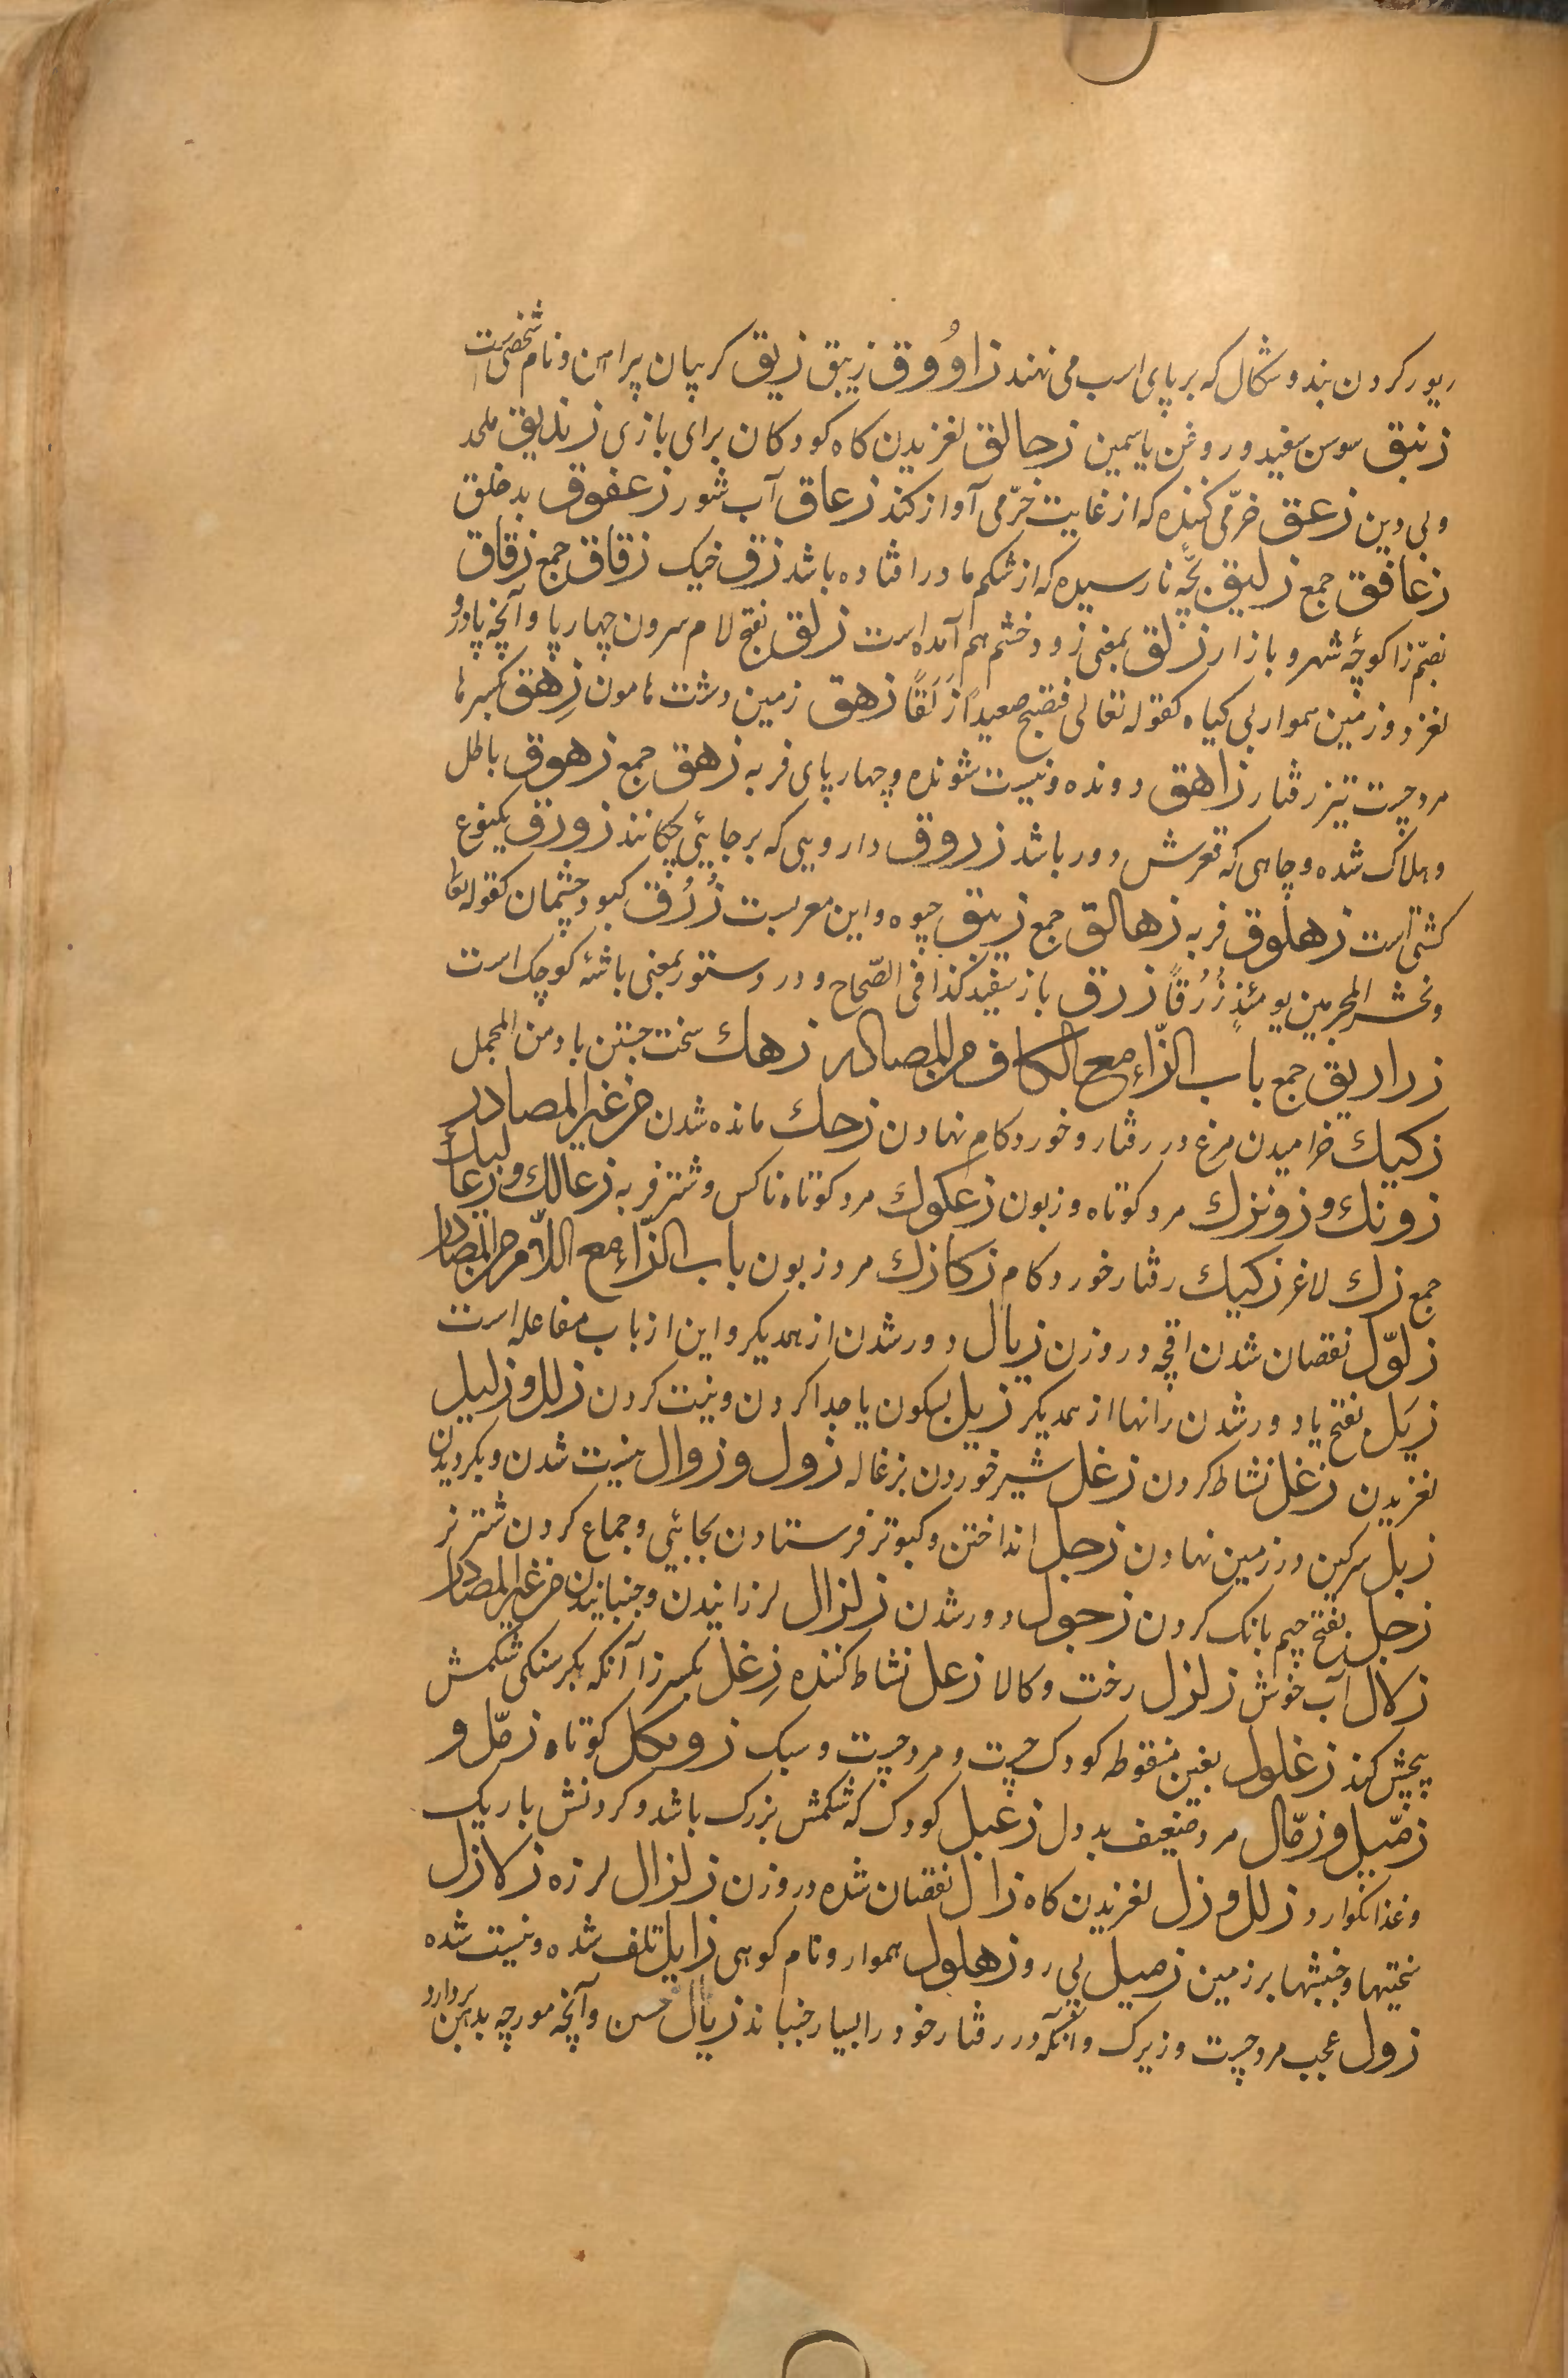 ریور کردن بند و شکال که بر پای اسب می نهند زاوُوق زیبق زیق کریبان پیراهن و نام شخصی است
زنبق سوسن سفید و روغن یاسمین زحالق لغزیدن کاه کودکان برای بازی زندیق ملحد
و بی دین زعق خرّمی کننده که از غایت خرّمی آواز کند زعاق آب شور زعفوق بد خلق
زعافق جمع زلیق بچّه نارسیده که از شکم مادر افتاده باشد زق خیک زقاق جمع زقاق
بضمّ زا کوچهٔ شهر و بازار زلق بمعنی زود خشم هم آمده است زلق بفتح لام سرون چهارپا و آنچه پا درو
لغزد و زمین هموار بی کیاه کقوله تعالی فتصبح صعیدًا زَلَقًا زهق زمین دشت هامون زِهق بکسر ها
مرد چست تیز رفتار زاهق دونده و نیست شونده و چهارپای فربه زهق جمع زهوق باطل
و هلاک شده و چاهی که قعرش دور باشد زروق دارویی که بر جایئی چکانند زورق یکنوع
کشتی است زهلوق فربه زهالق جمع زیبق جیوه و این معربست زُرُق کبود چشمان کقوله تعا
و نحشر المجرمین یومئذٍ زُرُقًا زرق باز سفید کذا فی الصّحاح و در دستور بمعنی باشهٔ کوچک است
زراریق جمع باب الزّاء مع الکاف من المصادر زهك سخت جستن باد من المجمل
زکیك خرامیدن مرغ در رفتار و خورد کام نهادن زحك مانده شدن من غیر المصادر
زونك و زونزك مرد کوتاه و زبون زعکوك مرد کوتاه ناکس و شتر فربه زعالك و زعالیك
جمع زك لاغر زکیك رفتار خورد کام زکازك مرد زبون باب الزّاء مع اللّام من المصادر
زلوّل نقصان شدن اقچه در وزن زیال دور شدن از همدیکر و این از باب مفاعله است
زیَل بفتح یا دور شدن رانها از همدیکر زیل بسکون یا جدا کردن و نیت کردن زلل و زلیل
لغزیدن زغل نشاط کردن زغل شیر خوردن بزغاله زول و زوال نیست شدن و بکردیدن
زبل سرکین در زمین نهادن زجل انداختن و کبوتر فرستادن بجایئی و جماع کردن شتر نر
زجل بفتح جیم بانک کردن زحول دور شدن زلزال لرزانیدن و جنبانیدن من غیر المصادر
زلال آب خوش زلزل رخت و کالا زعل نشاط کننده زِغل بکسر زا آنکه بکرسنکی شکمش
پیچش کند زغلول بغین منقوطه کودک چست و مرد چست و سبک زونکل کوتاه زمّل و
زمّیل و زمّال مرد ضعیف بد دل زغبل کودک که شکمش بزرک باشد و کردنش باریک
و غذا نکوارد زلل و زل لغزیدن کاه زال نقصان شده در وزن زلزال لرزه زلازل
سختیها و جنبشها بر زمین زمیل پی رو زهلول هموار و نام کوهی زایل تلف شده و نیست شده
زول عجب مرد چست و زیرک و آنکه در رفتار خود را بسیار جنباند زبال حسن و آنچه مورچه بدهن بردارد